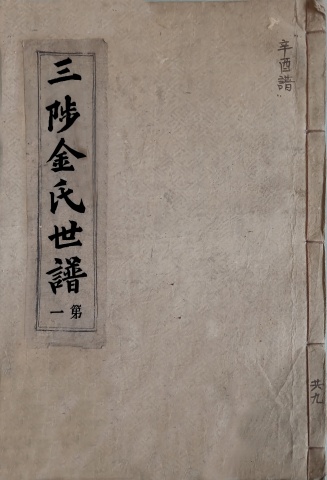 辛酉譜
三陟金氏世譜
第一
共九